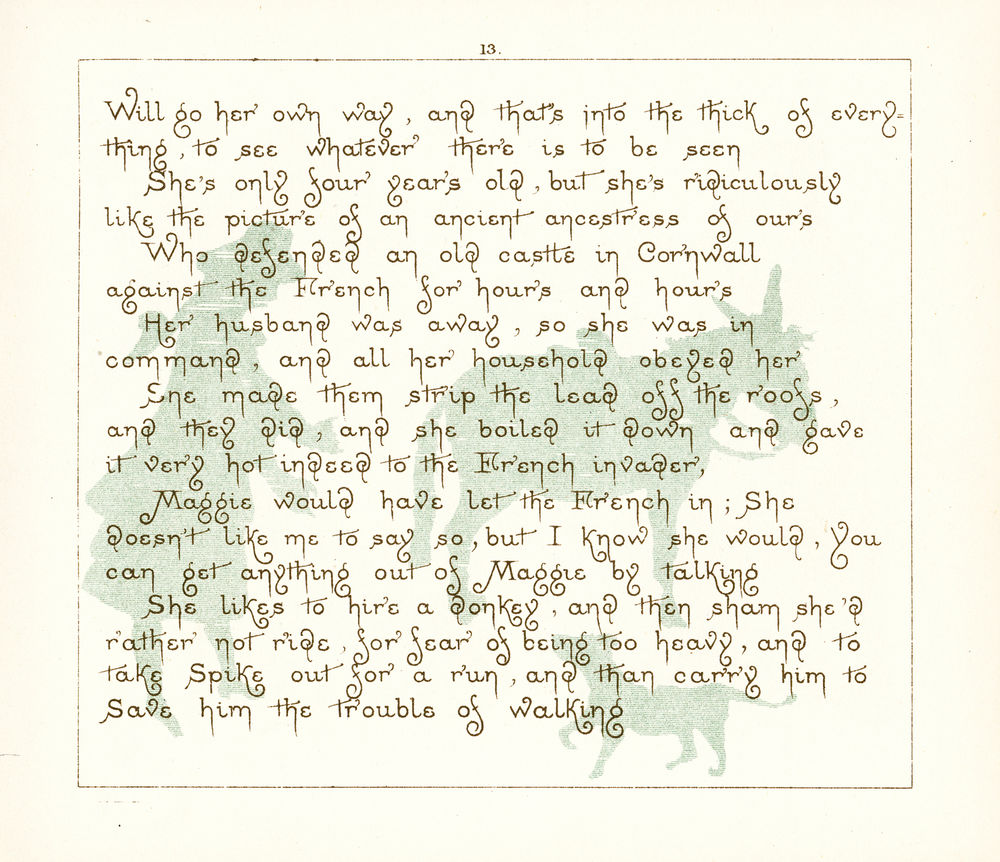 13.
Will go her own way, and that's into the thick of every=
thing, to see whatever there is to be seen
She's only four years old, but she's ridiculously
like the picture of an ancient ancestress of ours
Who defended an old castle in Cornwall
against the French for hours and hours
Her husband was away, so she was in
command, and all her household obeyed her
She made them strip the lead off the roofs,
and they did, and she boiled it down and gave
it very hot indeed to the French invader,
Maggie would have let the French in; She
doesn't like me to say so, but I know she would, You
can get anything out of Maggie by talking
She likes to hire a donkey, and then sham she'd
rather not ride, for fear of being too heavy, and to
take Spike out for a run, and than carry him to
Save him the trouble of walking